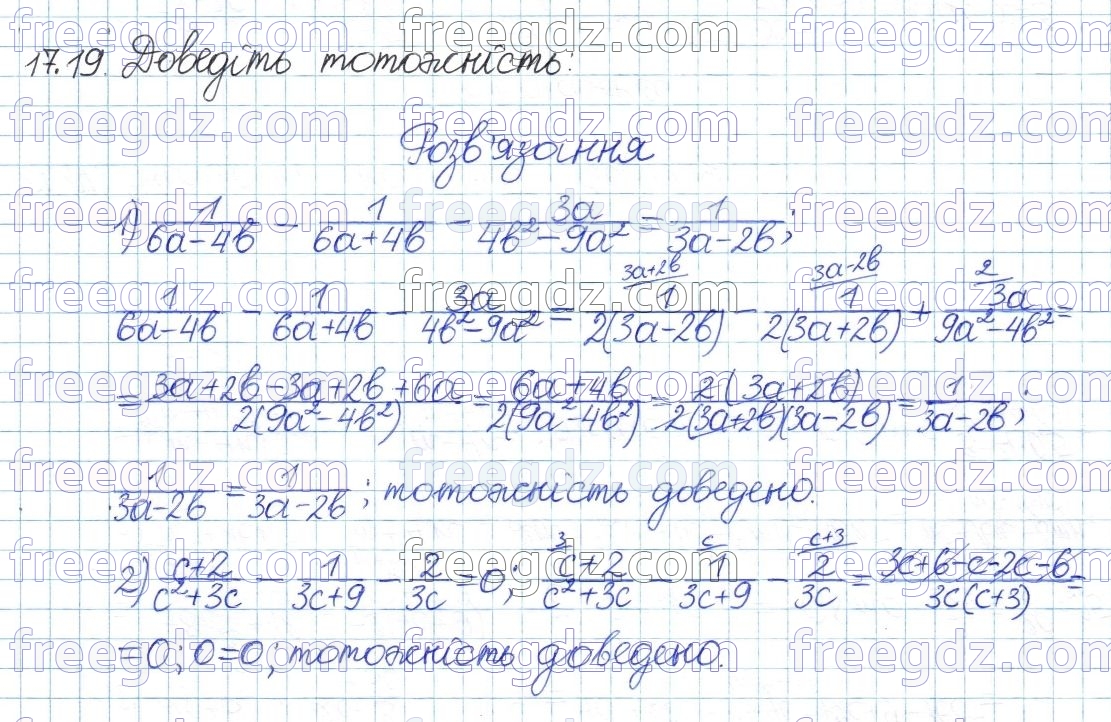 17.19. Доведіть тотожність:
Розв'язання
1) 1/(6a-4b) - 1/(6a+4b) - 3a/(4b²-9a²) = 1/(3a-2b);
1/(6a-4b) - 1/(6a+4b) - 3a/(4b²-9a²) = (3a+2b/ 1)/(2(3a-2b)) - (3a-2b/ 1)/(2(3a+2b)) + (2/ 3a)/(9a²-4b²) =
= (3a+2b-3a+2b+6a)/(2(9a²-4b²)) = (6a+4b)/(2(9a²-4b²)) = 2(3a+2b)/(2(3a+2b)(3a-2b)) = 1/(3a-2b);
1/(3a-2b) = 1/(3a-2b); тотожність доведено.
2) (c+2)/(c²+3c) - 1/(3c+9) - 2/(3c) = 0; (3/ c+2)/(c²+3c) - (c/ 1)/(3c+9) - (c+3/ 2)/(3c) = (3c+6-c-2c-6)/(3c(c+3)) =
= 0; 0=0; тотожність доведено.
freegdz.com